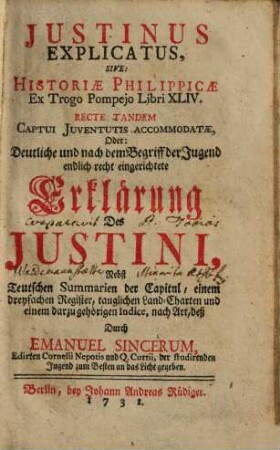 JUSTINUS
EXPLICATUS,
SIVE:
HISTORIÆ PHILIPPICÆ
Ex Trogo Pompejo Libri XLIV.
RECTE TANDEM
CAPTUI JUVENTUTIS ACCOMMODATÆ,
Oder:
Deutliche und nach dem Begriff der Jugend
endlich recht eingerichtete
Erklärung
Des
JUSTINI,
Nebst
Teutschen Summarien der Capitul, einem
dreyfachen Register, tauglichen Land-Charten und
einem darzu gehörigen Indice, nach Art, deß
Durch
EMANUEL SINCERUM,
Edirten Cornelii Nepotis und Q. Curtii, der studirenden
Jugend zum Besten an das Licht gegeben.
Berlin, bey Johann Andreas Rüdiger.
1731.